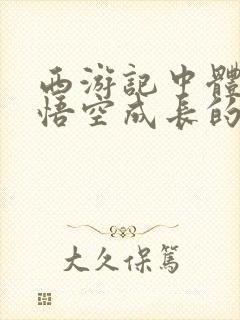 西游記中體
悟空成長的
大久保篤